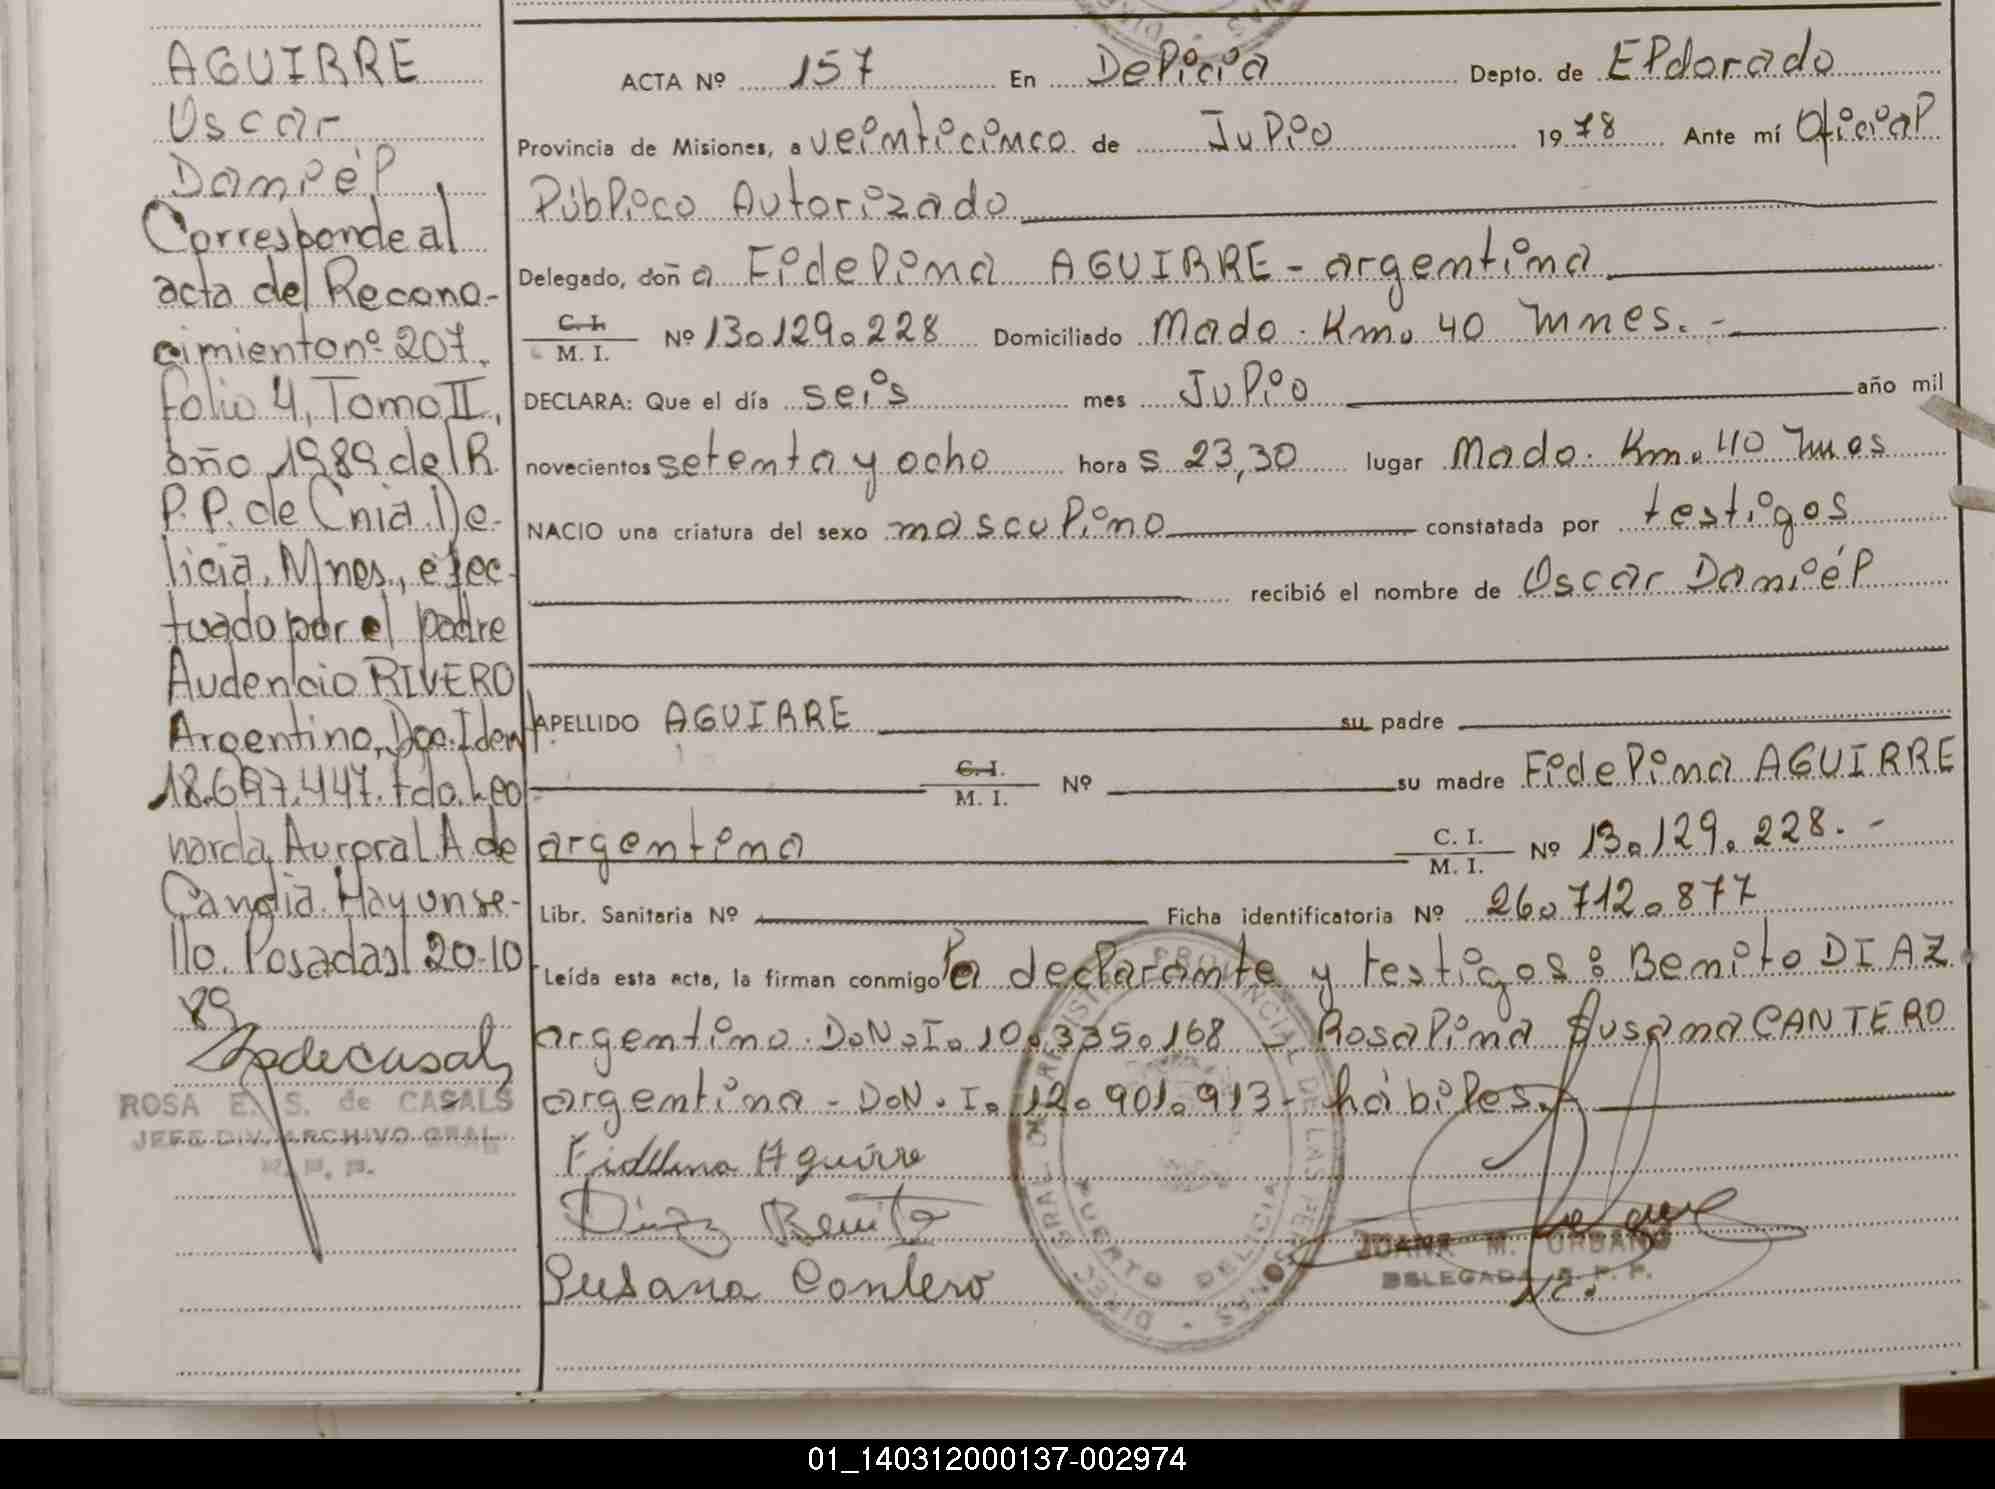 AGUIRRE
Oscar
Daniél
Corresponde al
acta del Recono-
cimiento nº 207,
folio 4, Tomo II,
año 1989 del R.
P.P. de Cnia. De-
licia, Mnes., efec-
tuado por el padre
Audencio RIVERO
Argentino, Doc. Ident.
18.697.447. Fdo. Leo
narda Aurora L. A de
Candia. Hay un se-
llo. Posadas, 20-10
89
ROSA E. S. de CASALS
JEFE DIV. ARCHIVO GRAL.
ACTA Nº 157 En Delicia Depto. de Eldorado
Provincia de Misiones, a veinticinco de Julio 1978 Ante mí Oficial
Público Autorizado
Delegado, doña Fidelina AGUIRRE - argentina
C. I.
M. I. Nº 13.129.228 Domiciliado Mado. Km. 40 Mnes. -
DECLARA: Que el día seis mes Julio año mil
novecientos setenta y ocho hora s 23,30 lugar Mado. Km. 40 Mnes
NACIO una criatura del sexo masculino constatada por testigos
recibió el nombre de Oscar Daniél
APELLIDO AGUIRRE su padre
C. I.
M. I. Nº su madre Fidelina AGUIRRE
argentina C. I.
M. I. Nº 13.129.228. -
Libr. Sanitaria Nº Ficha identificatoria Nº 26.712.877
Leída esta acta, la firman conmigo la declarante y testigos: Benito DIAZ
argentino. D.N.I. 10.335.168 - Rosalina Susana CANTERO
argentina - D.N.I. 12.901.913 - hábiles.-
Fidelina Aguirre
Diaz Benito
Susana Cantero
PUERTO DELICIA
JUANA M. URBANO
DELEGADA R. P. P.
01_140312000137-002974